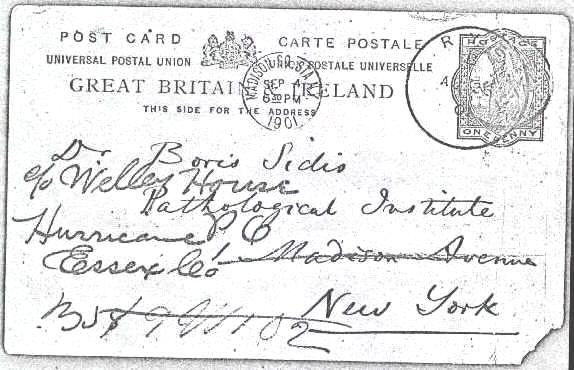 POST CARD CARTE POSTALE
UNIVERSAL POSTAL UNION UNION POSTALE UNIVERSELLE
GREAT BRITAIN IRELAND
THIS SIDE FOR THE ADDRESS
MADISON SQ. STA. N.Y.
SEP 4
6 30 PM
1901
ONE PENNY
Dr. Boris Sidis
c/o Welley House
Pathological Institute
Hurricane P.O.
Essex Co. Madison Avenue
New York